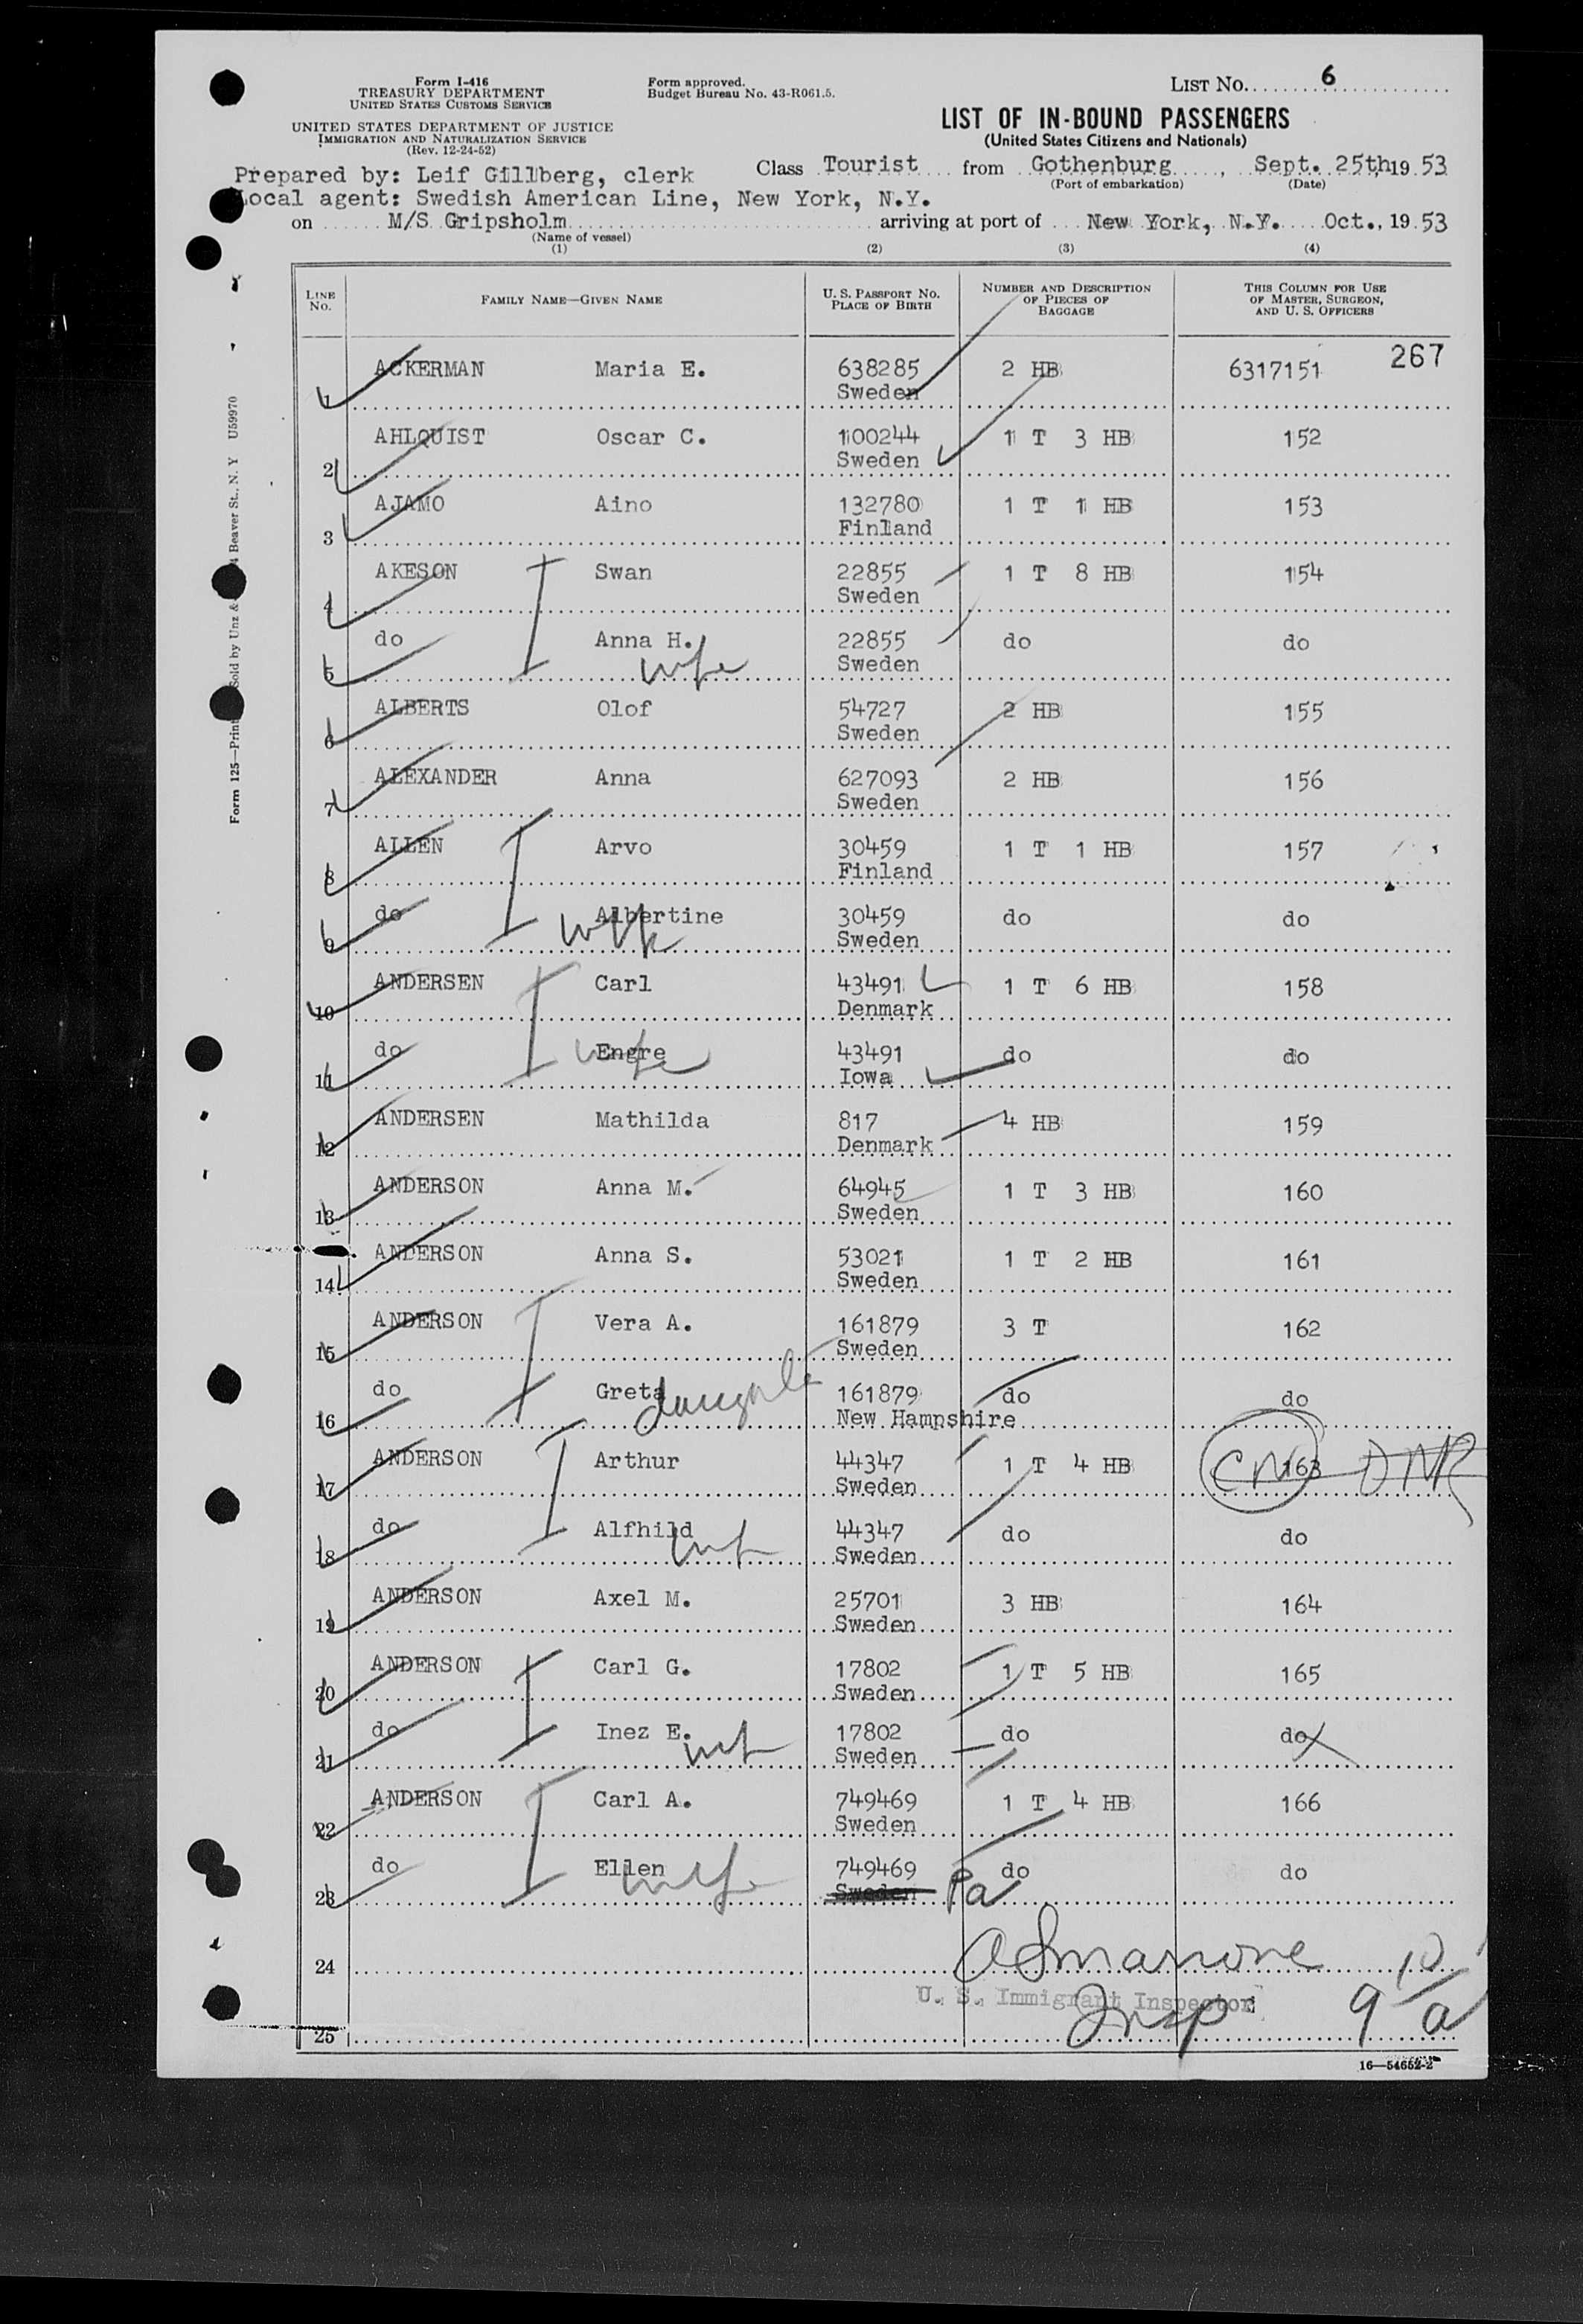 Form I-416
TREASURY DEPARTMENT
UNITED STATES CUSTOMS SERVICE
UNITED STATES DEPARTMENT OF JUSTICE
IMMIGRATION AND NATURALIZATION SERVICE
(Rev. 12-24-52)
Form approved.
Budget Bureau No. 43-R061.5.
LIST No. 6
LIST OF IN-BOUND PASSENGERS
(United States Citizens and Nationals)
Prepared by: Leif Gillberg, clerk
Class Tourist from Gothenburg, Sept. 25th, 1953
(Port of embarkation) (Date)
Local agent: Swedish American Line, New York, N.Y.
on M/S Gripsholm arriving at port of New York, N.Y. Oct., 1953
(Name of vessel)
(1) (2) (3) (4)
LINE No. FAMILY NAME—GIVEN NAME U. S. PASSPORT NO. PLACE OF BIRTH NUMBER AND DESCRIPTION OF PIECES OF BAGGAGE THIS COLUMN FOR USE OF MASTER, SURGEON, AND U. S. OFFICERS
267
1 ACKERMAN Maria E. 638285 2 HB 6317151
Sweden
2 AHLQUIST Oscar C. 100244 1 T 3 HB 152
Sweden
3 AJAMO Aino 132780 1 T 1 HB 153
Finland
4 AKESON Swan 22855 1 T 8 HB 154
Sweden
5 do Anna H. 22855 do do
wife Sweden
6 ALBERTS Olof 54727 2 HB 155
Sweden
7 ALEXANDER Anna 627093 2 HB 156
Sweden
8 ALLEN Arvo 30459 1 T 1 HB 157
Finland
9 do Albertine 30459 do do
wife Sweden
10 ANDERSEN Carl 43491 1 T 6 HB 158
Denmark
11 do Engre 43491 do do
wife Iowa
12 ANDERSEN Mathilda 817 4 HB 159
Denmark
13 ANDERSON Anna M. 64945 1 T 3 HB 160
Sweden
14 ANDERSON Anna S. 53021 1 T 2 HB 161
Sweden
15 ANDERSON Vera A. 161879 3 T 162
Sweden
16 do Greta 161879 do do
daughte New Hampshire
17 ANDERSON Arthur 44347 1 T 4 HB 163 CM DMR
Sweden
18 do Alfhild 44347 do do
wf Sweden
19 ANDERSON Axel M. 25701 3 HB 164
Sweden
20 ANDERSON Carl G. 17802 1 T 5 HB 165
Sweden
21 do Inez E. 17802 do do
wf Sweden
22 ANDERSON Carl A. 749469 1 T 4 HB 166
Sweden
23 do Ellen 749469 do do
wife Sweden Pa
24
U. S. Immigrant Inspector
Insp
25
16—54652-2
Form 125—Print Sold by Unz & Beaver St., N. Y U59970